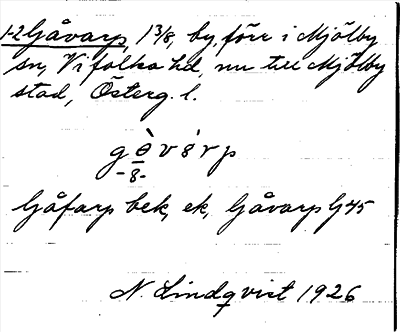 1-2 Gåvarp, 1 3/8, by, förr i Mjölby
sn, Vifolka hd, nu till Mjölby
stad, Österg. l.
gèvȣ́rp
-8-
Gåfarp bek, ek, Gåvarp G45
N. Lindqvist 1926